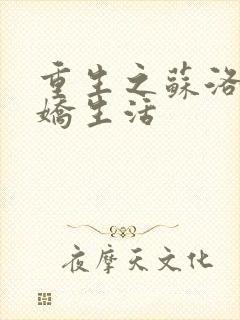 重生之蘇洛
嬌生活
夜摩天文化